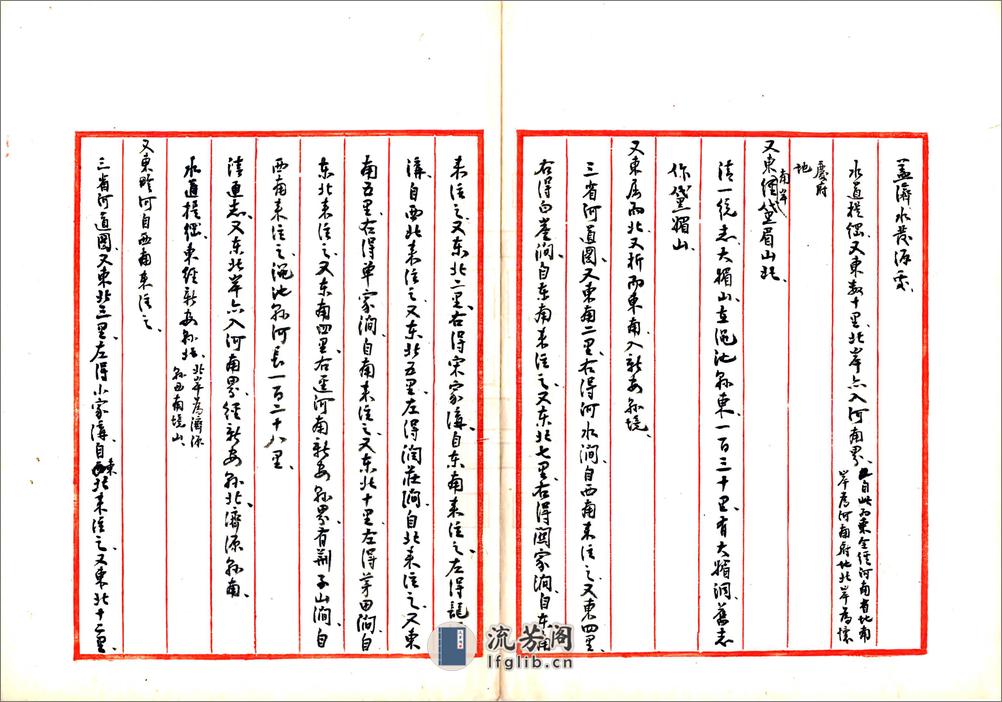 盖濟水發源處
水道提綱、又東數十里、北岸亦入河南界、自此而東全經河南省北南岸為河南府地北岸為懷
慶府地
又東南岸經黛眉山北
清一統志、大媚山在澠池縣東一百三十里、有大媚洞、舊志
作黛媚山、
又東屈而北、又折而東南入新安縣境、
三省河道圖、又東南二里、右得河水澗、自西南來注之、又東四里、
右得白崖澗、自東南來注之、又東北七里、右得關家澗、自東南
來注之、又東北二里、右得宋家溝、自東南來注之、左得
溝、自西北來注之、又東北五里、左得澗莊澗、自北來注之、又東
南五里、右得單家澗、自南來注之、又東北十里、左得茅田澗、自
東北來注之、又東南四里、右逕河南新安縣界、有荊子山澗、自
西南來注之、澠池縣河長一百二十八里、
清通志、又東北岸亦入河南界、經新安縣北、濟源縣南、
水道提綱、東經新安縣北、北岸為濟源縣西南境山、
又東畛河自西南來注之、
三省河道圖、又東北三里、左得小家溝、自東北來注之、又東北十二里、
流芳阁
lfglib.cn